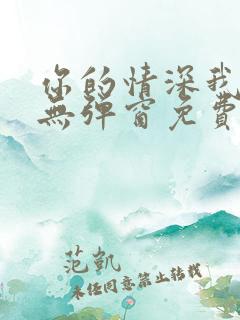 你的情深我
無彈窗免費
范凱
未經同意禁止轉載